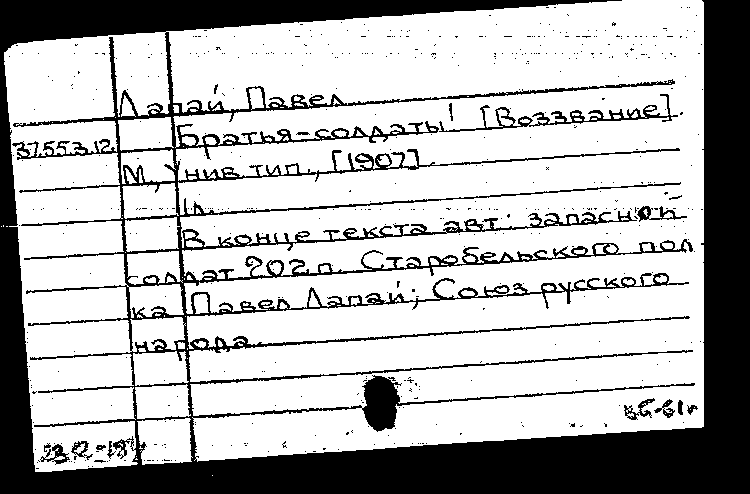 Лапай, Павел
37.55.3.12. Братья-солдаты! [Воззвание].
М., Унив. тип., [1907].
1 л.
В конце текста авт: запасной
солдат 202 п. Старобельского пол-
ка Павел Лапай; Союз русского
народа.